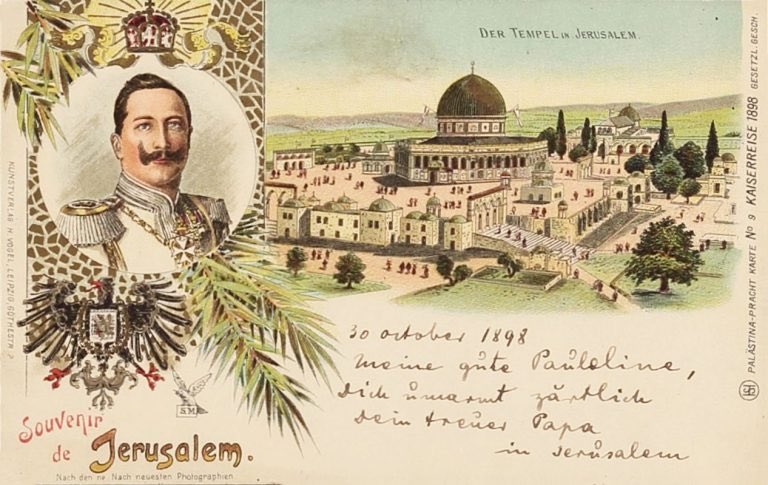 DER TEMPEL IN JERUSALEM.
KUNSTVERLAG H. VOGEL, LEIPZIG, GÖTHESTR. 2
PALÄSTINA-PRACHT KARTE No 9 KAISERREISE 1898 GESETZL. GESCH.
S.M.
30 october 1898
Meine gute Pauleline,
Dich umarmt zärtlich
Dein treuer Papa
in Jerusalem
Souvenir
de Jerusalem.
Nach den ne. Nach neuesten Photographien